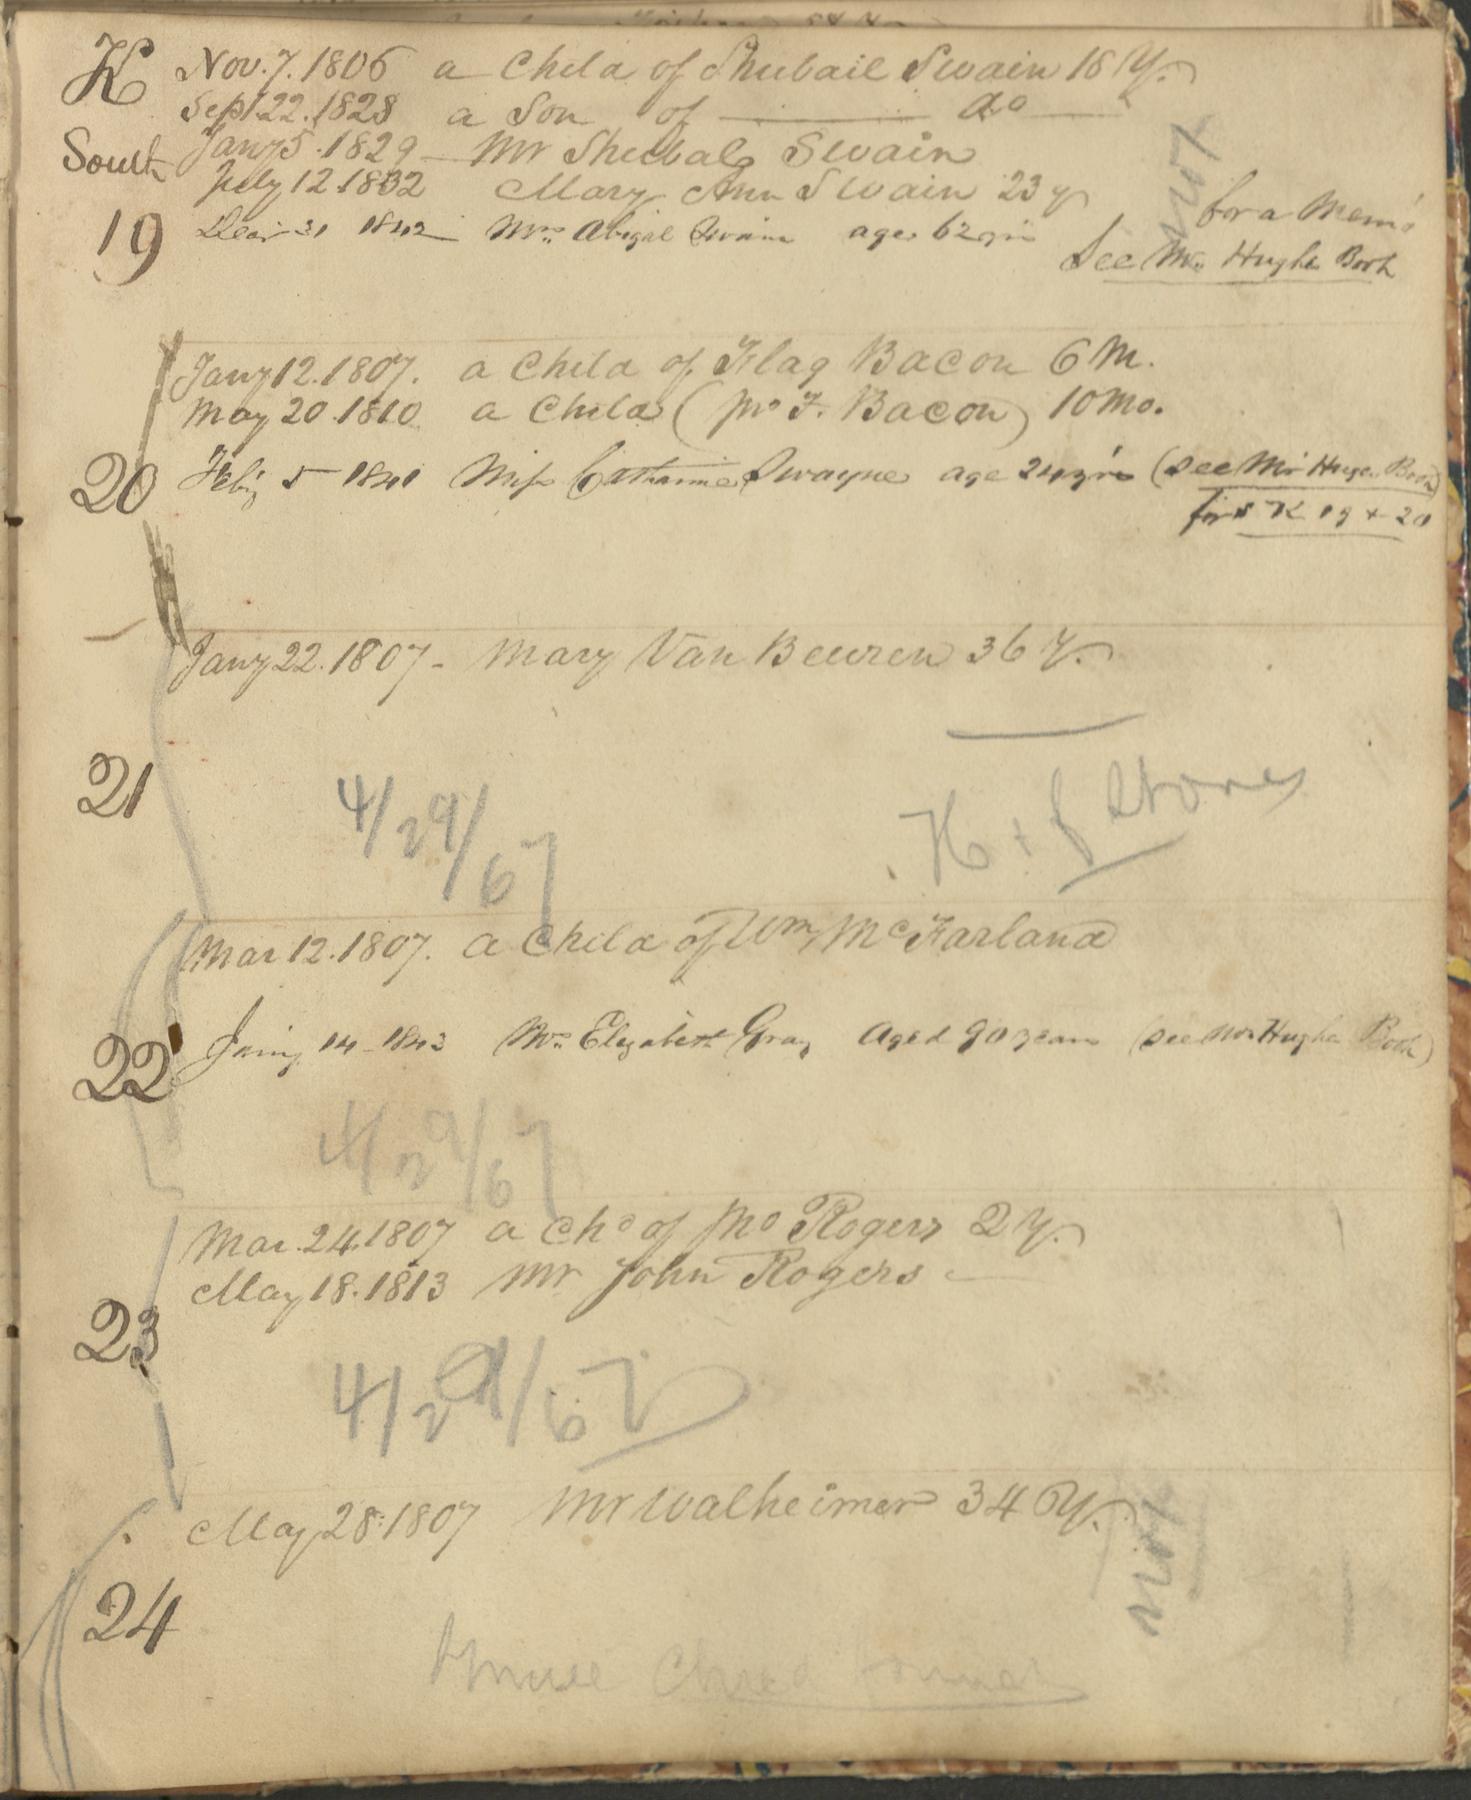 K Nov. 7. 1806 a Child of Shubail Swain 18 Y.
Sept 22. 1828 a Son of do
South Jany 5. 1829 Mr Shubal Swain
July 12 1832 Mary Ann Swain 23 y
for a Mem
19 31 1842 Mrs Abigal Swain age 62 yrs
See Mr Hughs Book
Jany 12. 1807. a Child of Flag Bacon 6 M.
May 20. 1810 a Child (Jno F. Bacon) 10 Mo.
20 Feby 5 1841 Miss Catharine Swayne age 24 yrs (see Mr Huges Book)
for K 19 + 20
Jany 22. 1807 - Mary Van Beuren 36 Y.
21
4/29/67
K + Stones
Mar 12. 1807. a Child of Wm McFarland
22 Jany 14 1843 Mrs Elizabeth Gray Aged 90 years (see Mr Hughs Book)
4/29/67
Mar. 24. 1807 a Chd of Jno Rogers 2 Y.
May 18. 1813 Mr John Rogers
23
4/29/67
May 28. 1807 Mr Walheimer 34 Y.
24